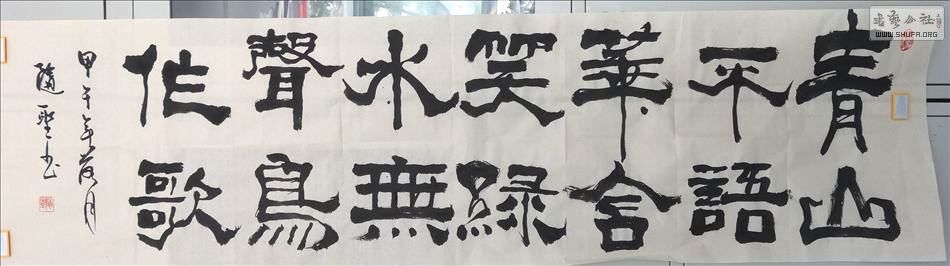 青山
不語
華含
笑綠
水無
聲鳥
作歌
甲午年荷月
隨聖书
書藝公社
WWW.SHUFA.ORG